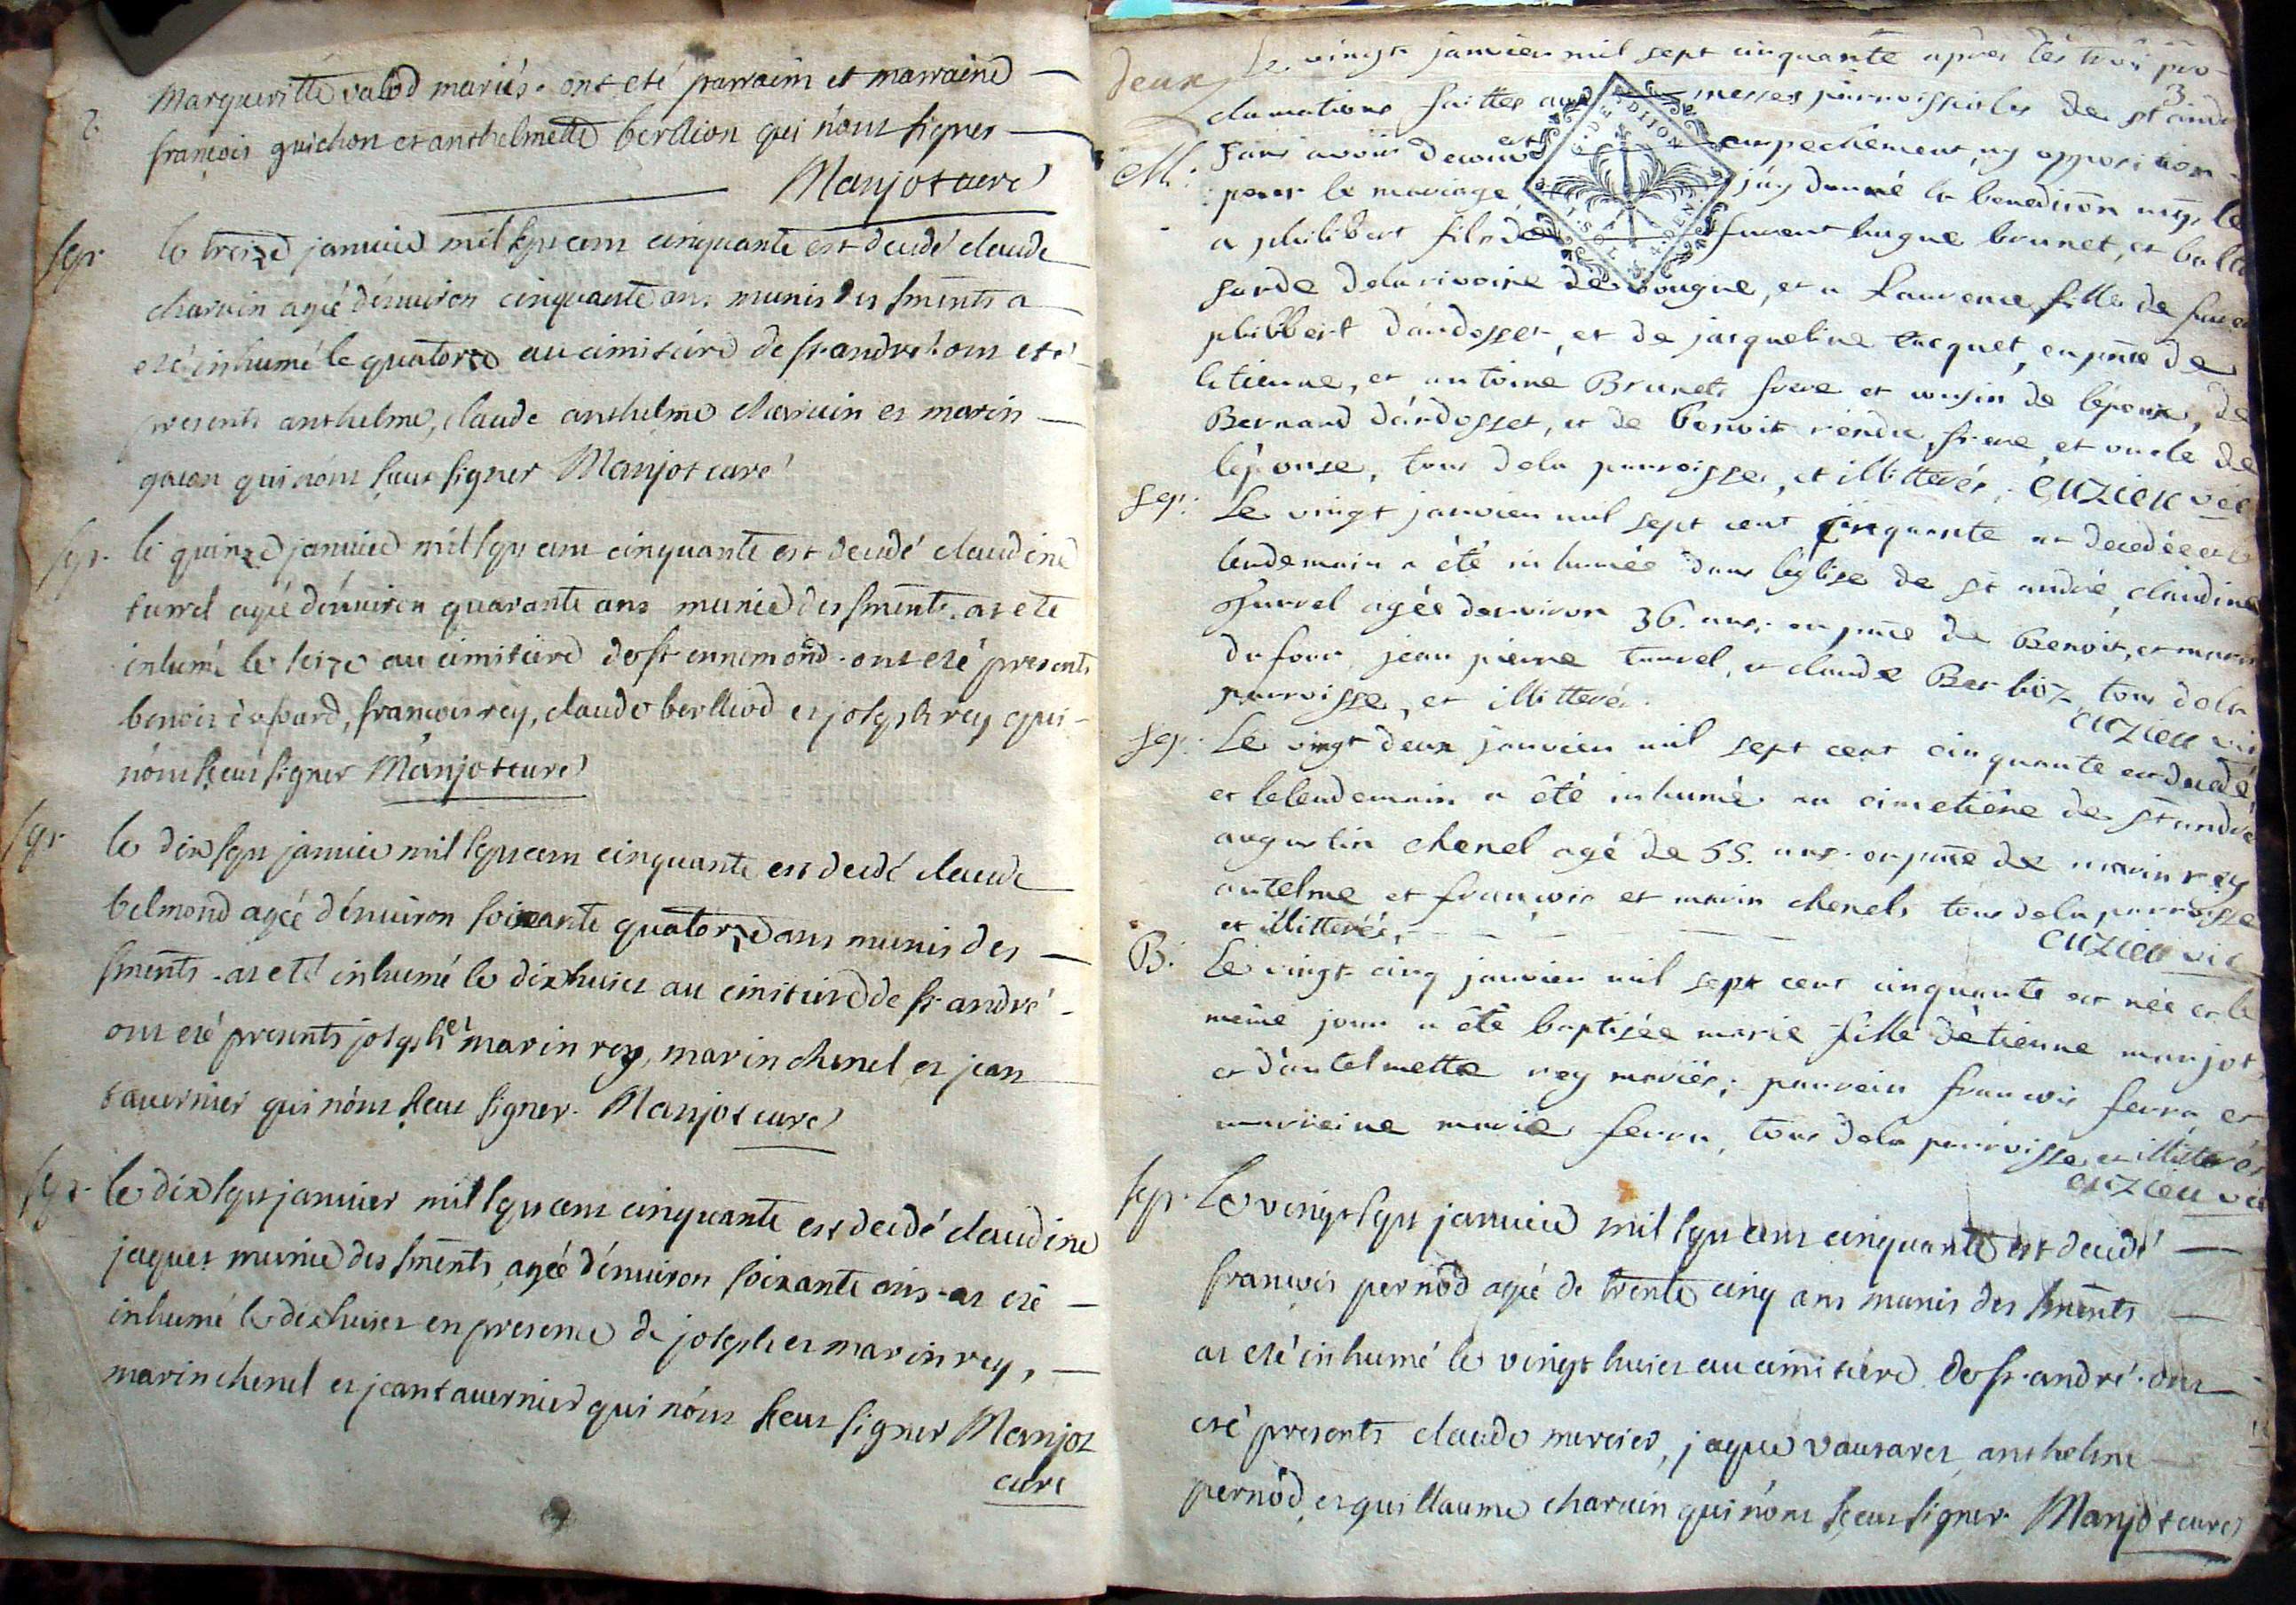 Margueritte valod mariés. ont eté parrain et marraine
françois guichon et anthelmette berllion qui n'ont signer
Manjot curé
sep. le treize janvier mil sept cent cinquante est decedé claude
charvin agé d'environ cinquante ans munis des sments a
eté inhumé le quatorze au cimitiere de st. andré. ont eté
presents anthelme, claude anthelme charvin et marin
qui n'ont sceut signer Manjot curé
sep. le quinze janvier mil sept cent cinquante est decedé claudine
turrel agée d'environ quarante ans munie des sments. at eté
inhumé le seize au cimitiere de st ennemond. ont eté presents
benoit françois rey, claude berlliod et joseph rey qui
n'ont sceut signer Manjot curé
sep. le dix sept janvier mil sept cent cinquante est decedé claude
belmond agée d'environ soixante quatorze ans munis des
sments. at eté inhumé le dix huict au cimitiere de st. andré
ont eté presents joseph et marin rey, marin chenel et jean
tavernier qui n'ont sceut signer. Manjot curé
sep. le dix sept janvier mil sept cent cinquante est decedé claudine
jaquet munie des sments, agée d'environ soixante ans. at eté
inhumé le dix huict en presence de joseph et marin rey,
marin chenel et jean tavernier qui n'ont sceut signer Manjot
curé
3.
deux Le vingt janvier mil sept cinquante apres les trois pro-
clamations faittes aux messes parroissiales de st andré
M. sans avoir decouvert empechement, ny opposition
pour le mariage, j'ay donné la benediction nup.le
DE DIJON
a philibert fils de furent hugue brunet, et balta
sarde delarivoire de vougne, et a Laurence fille de furent
philibbert d'ardosset, et de jacqueline tacquet, en pnce de
Etienne, et antoine Brunets frere et cousin de l'epoux, de
Bernard d'ardosset, et de benoit rendu, frere, et oncle de
l'epouse, tous dela parroisse, et illitterés. cuzieu vic
sep. Le vingt janvier mil sept cent cinquante est decedée et le
lendemain a été inhumée dans l'eglise de st andré, claudine
turrel agée d'environ 36. ans. en pnce de Benoit, et marin
dufour, jean pierre turrel, et claude Berlioz, tous dela
parroisse, et illitterés.
cuzieu vic
sep. Le vingt deux janvier mil sept cent cinquante est decedé,
et lelendemain a été inhumé au cimetiére de st andré
augustin chenel agé de 55. ans. en pnce de marin rey
antelme et françois et marin chenels tous dela parroisse
et illitterés,
cuzieu vic
B. Le vingt cinq janvier mil sept cent cinquante est née et le
même jour a été baptisée marie fille d'étienne manjot,
et d'antelmette rey mariés; parrein françois ferra et
marreine marie ferra, tous dela parroisse et illitterés
cuzieu vic
sep. Le vingt sept janvier mil sept cent cinquante est decedé
françois pernod agé de trente cinq ans munis des sments
at eté inhumé le vingt huict au cimitiére de st. andré. ont
eté presents claude mercier, jaque vautaret anthelme
pernod, et guillaume charvin qui n'ont sceut signer Manjot curé